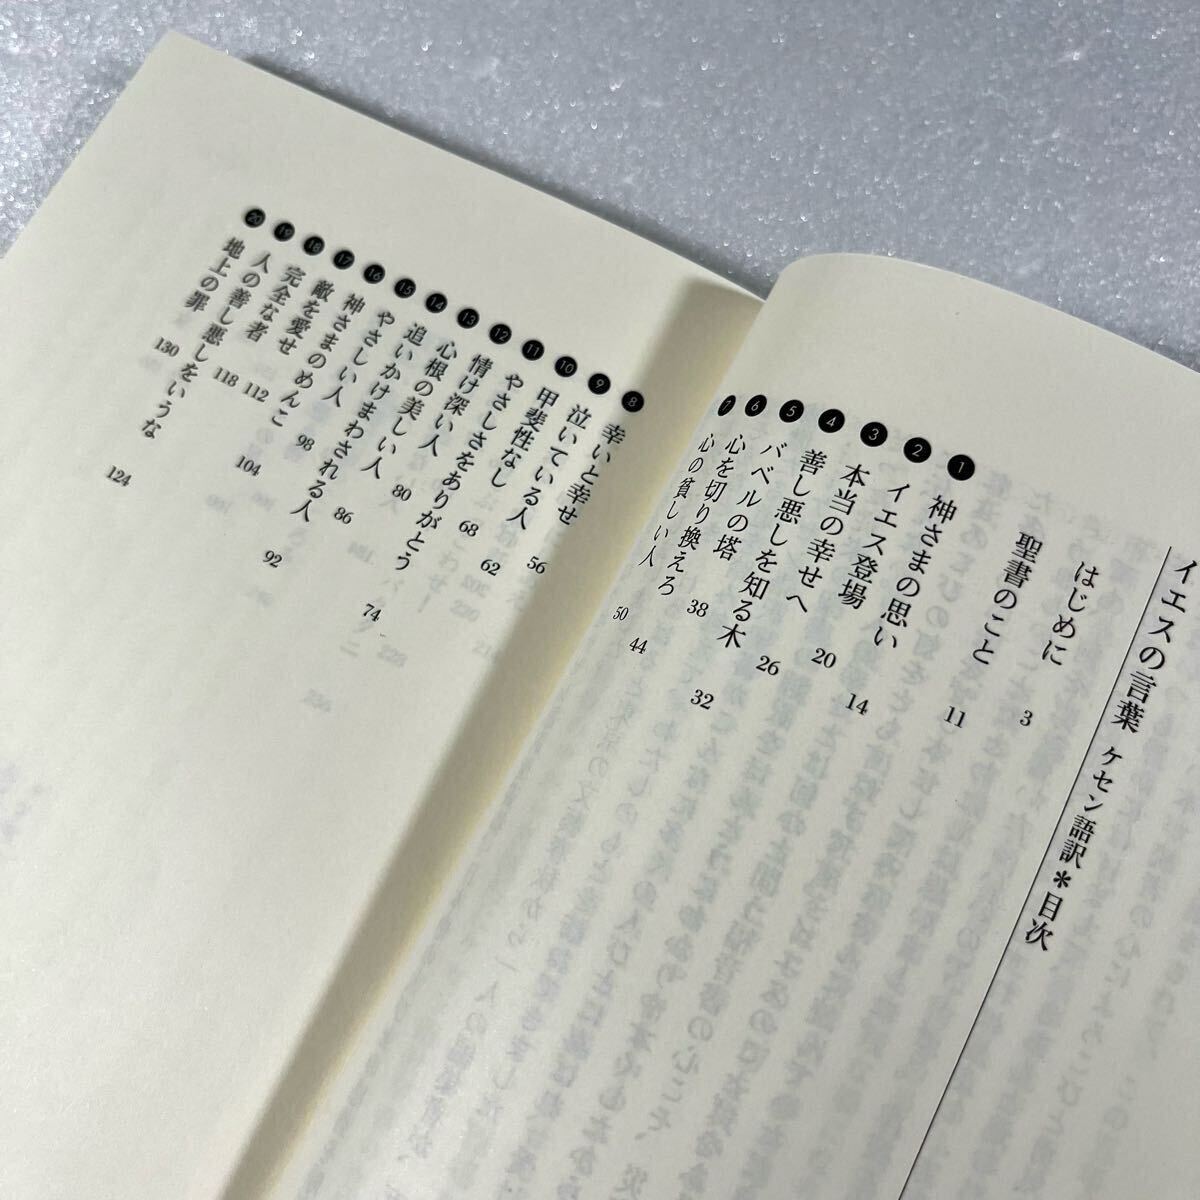 イエスの言葉 ケセン語訳＊目次
はじめに 3
聖書のこと 11
❶ 神さまの思い 14
❷ イエス登場 20
❸ 本当の幸せへ 26
❹ 善し悪しを知る木 32
❺ バベルの塔 38
❻ 心を切り換えろ 44
❼ 心の貧しい人 50
❽ 幸いと幸せ 56
❾ 泣いている人 62
❿ 甲斐性なし 68
⓫ やさしさをありがとう 74
⓬ 情け深い人 80
⓭ 心根の美しい人 86
⓮ 追いかけまわされる人 92
⓯ やさしい人 98
⓰ 神さまのめんこ 104
⓱ 敵を愛せ 112
⓲ 完全な者 118
⓳ 人の善し悪しをいうな 124
⓴ 地上の罪 130